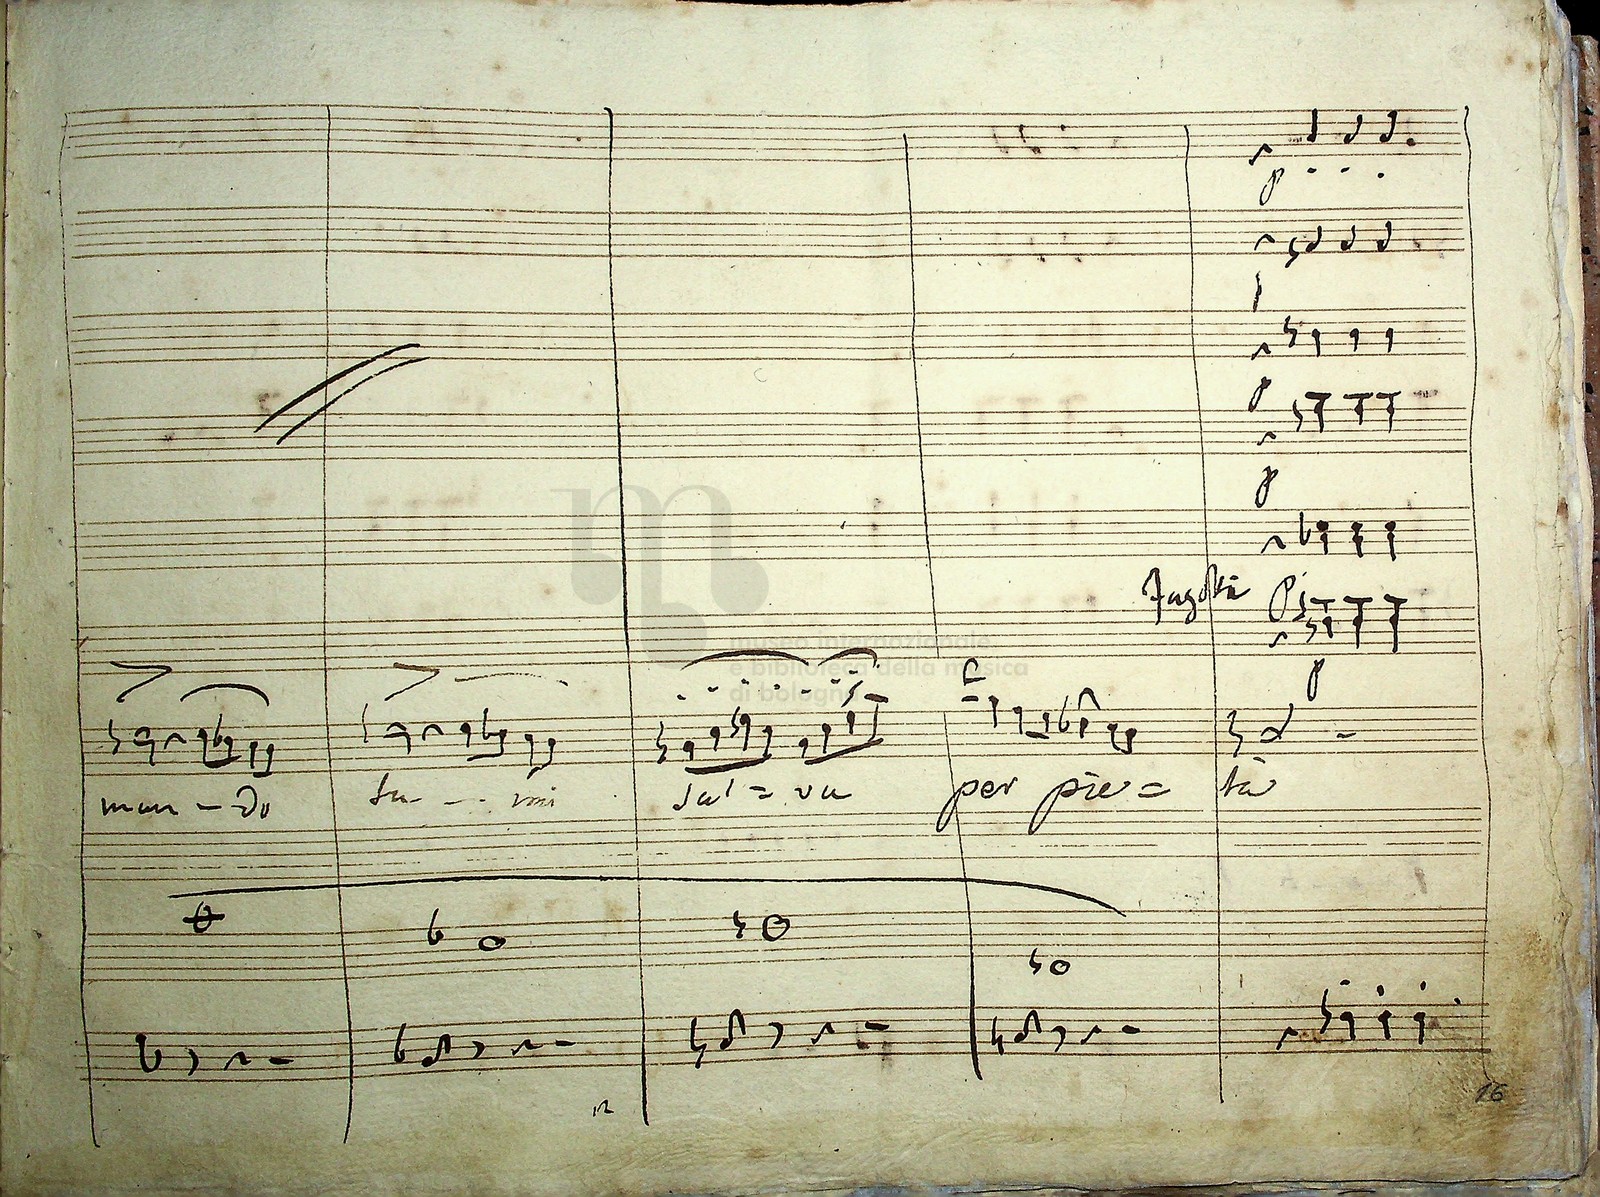 p
p
p
Fagotti
p
museo internazionale
e biblioteca della musica
di bologna
man - do sal = va per pie = tà
16